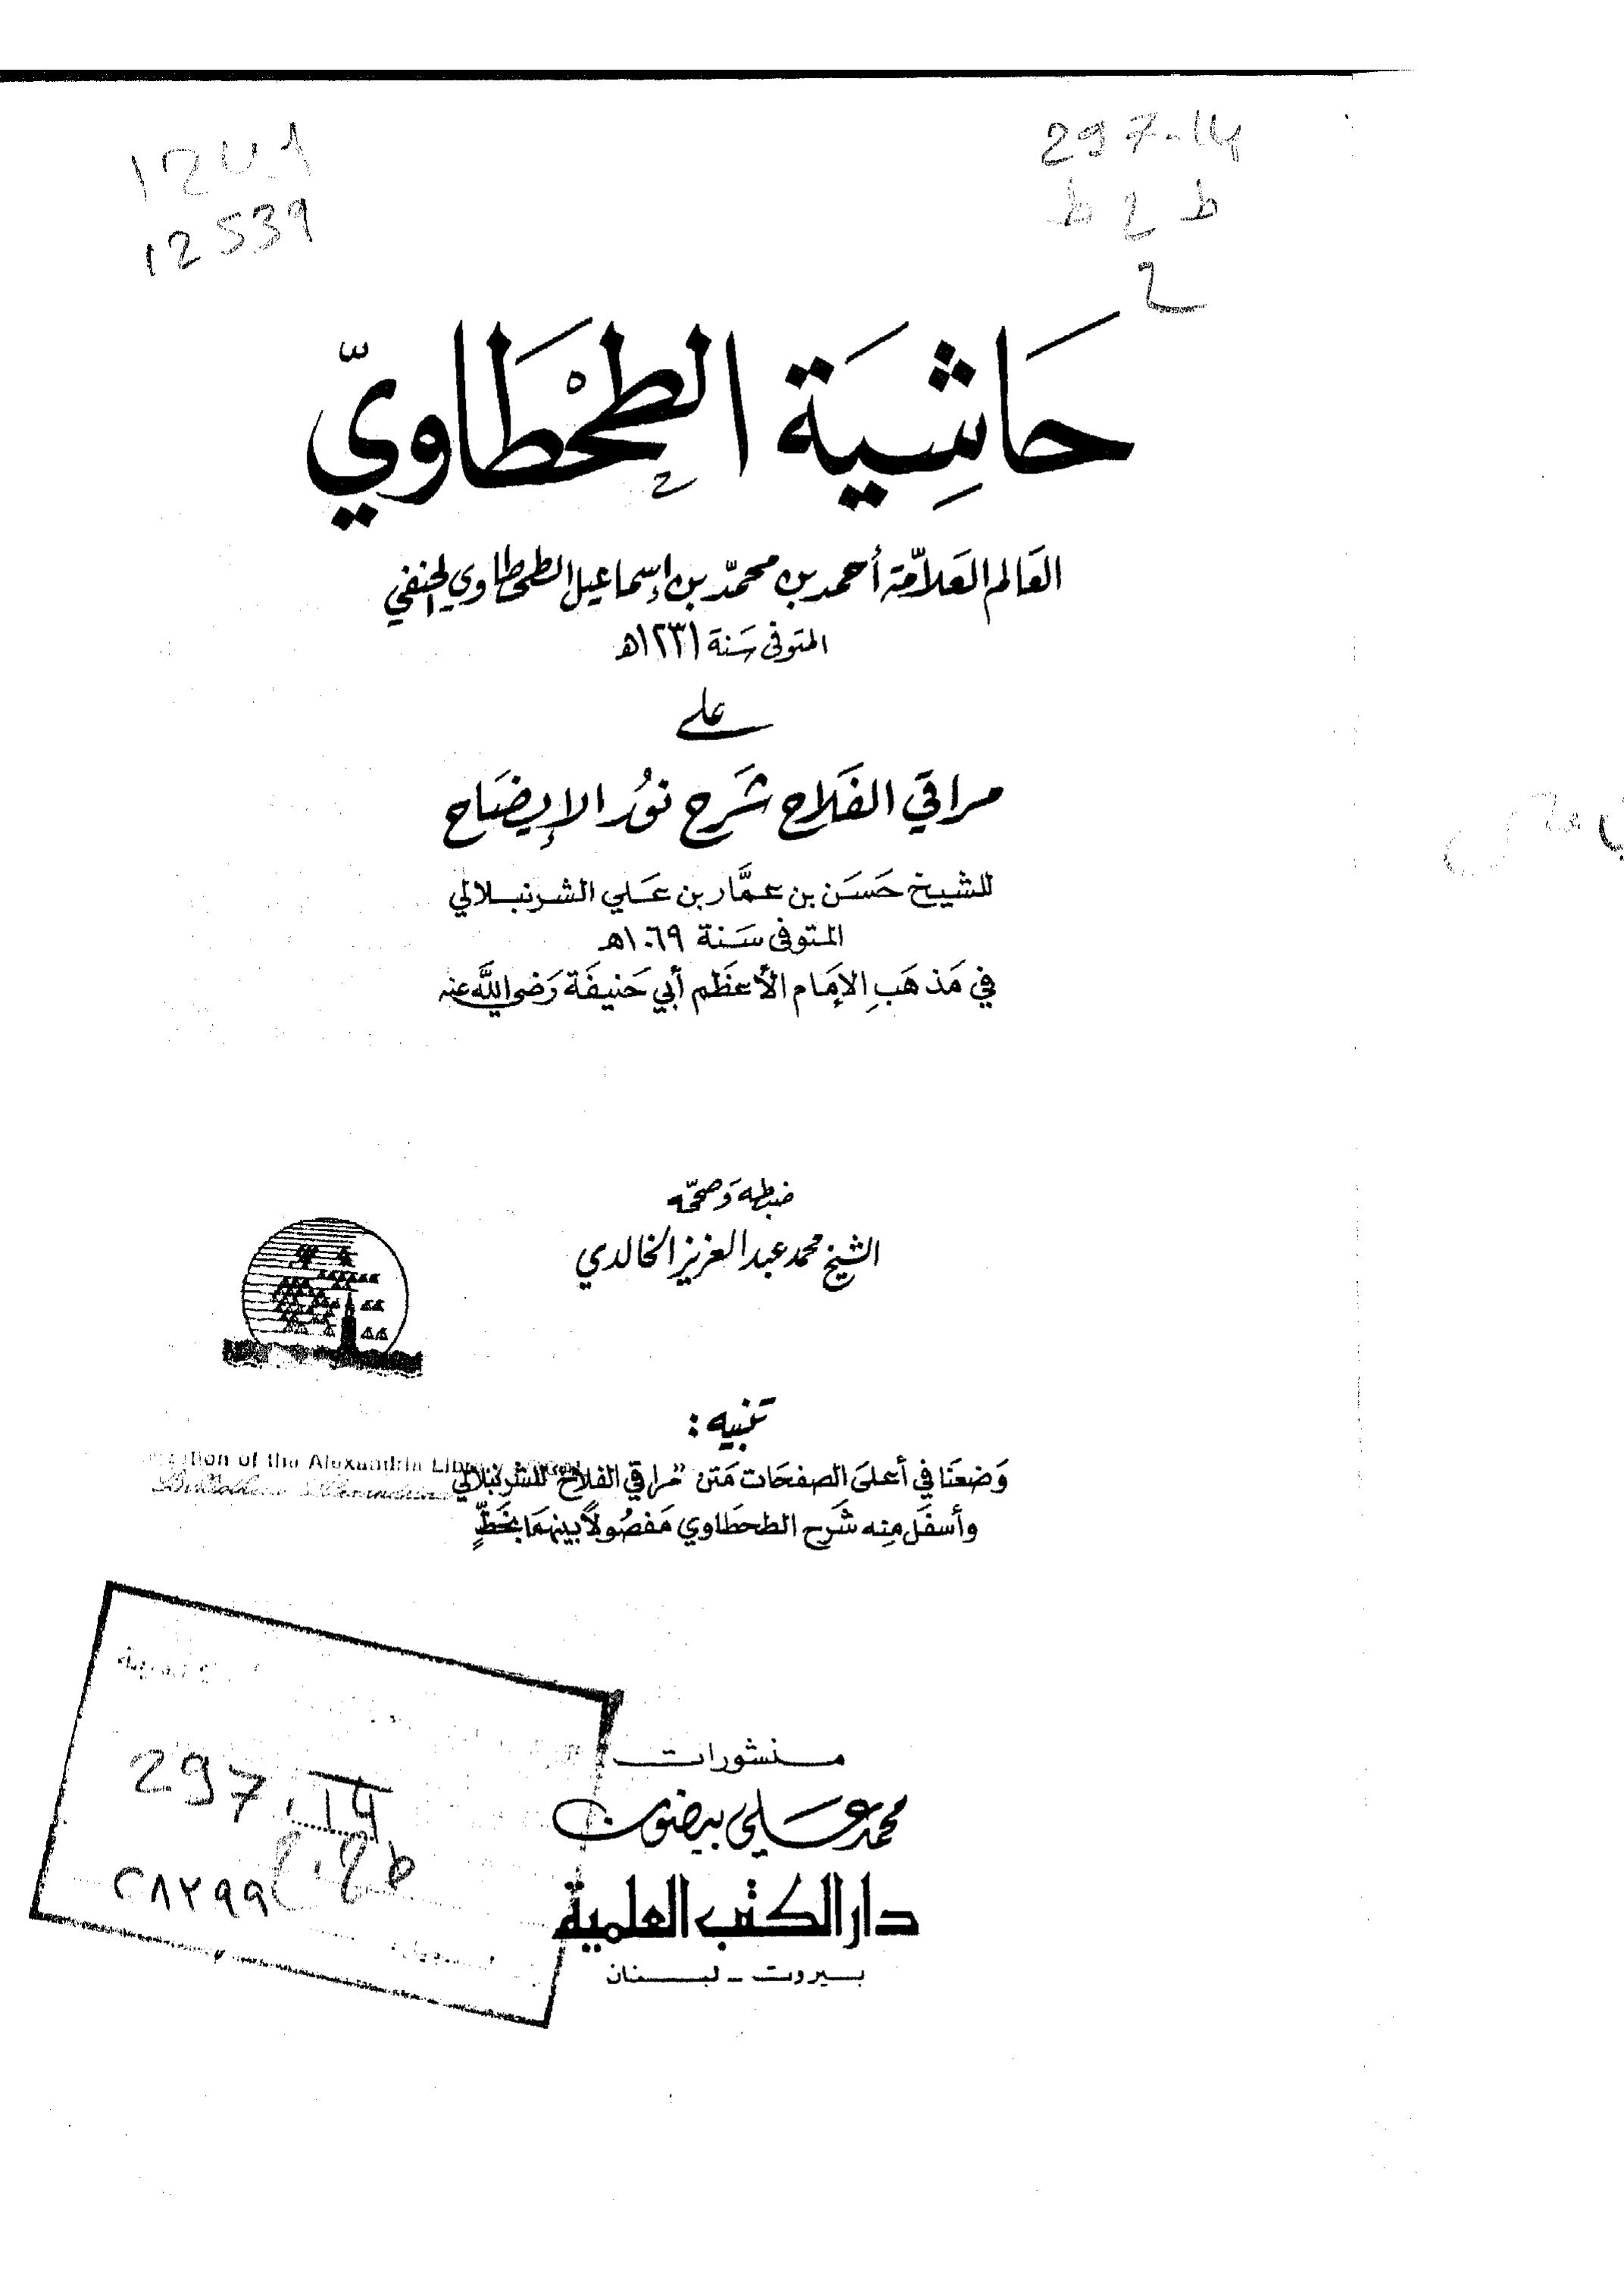 297.14
12539
حَاشِيَة الطَّحْطَاوِيّ
العَالم العَلاّمَة أحمد بن محمّد بن إسماعيل الطحطاوي الحنفي
المتوفى سَنة ١٢٣١ه
على
مراقي الفَلاح شَرح نوُر الإيضَاح
للشيخ حَسَن بن عمَّار بن عَلي الشرنبلالي
المتوفى سَنة ١٠٦٩ه
في مَذهَبِ الإمَام الأعظَم أبي حَنيفَة رَضي اللَّه عنه
ضبطه وَصحّحه
الشيخ محمد عبد العزيز الخالدي
تنبيه :
وَضعنَا في أعلىَ الصفحَات مَتن "مراقي الفلاح" للشرنبلالي
وأسفَل مِنه شَرح الطحطَاوي مَفصُولاً بينهمَا بخَطٍّ
of the Alexandria Library
297.14
٢٨٢٩٩
منشورات
محمد عَلي بيضون
دار الكتب العلمية
بيروت - لبنان